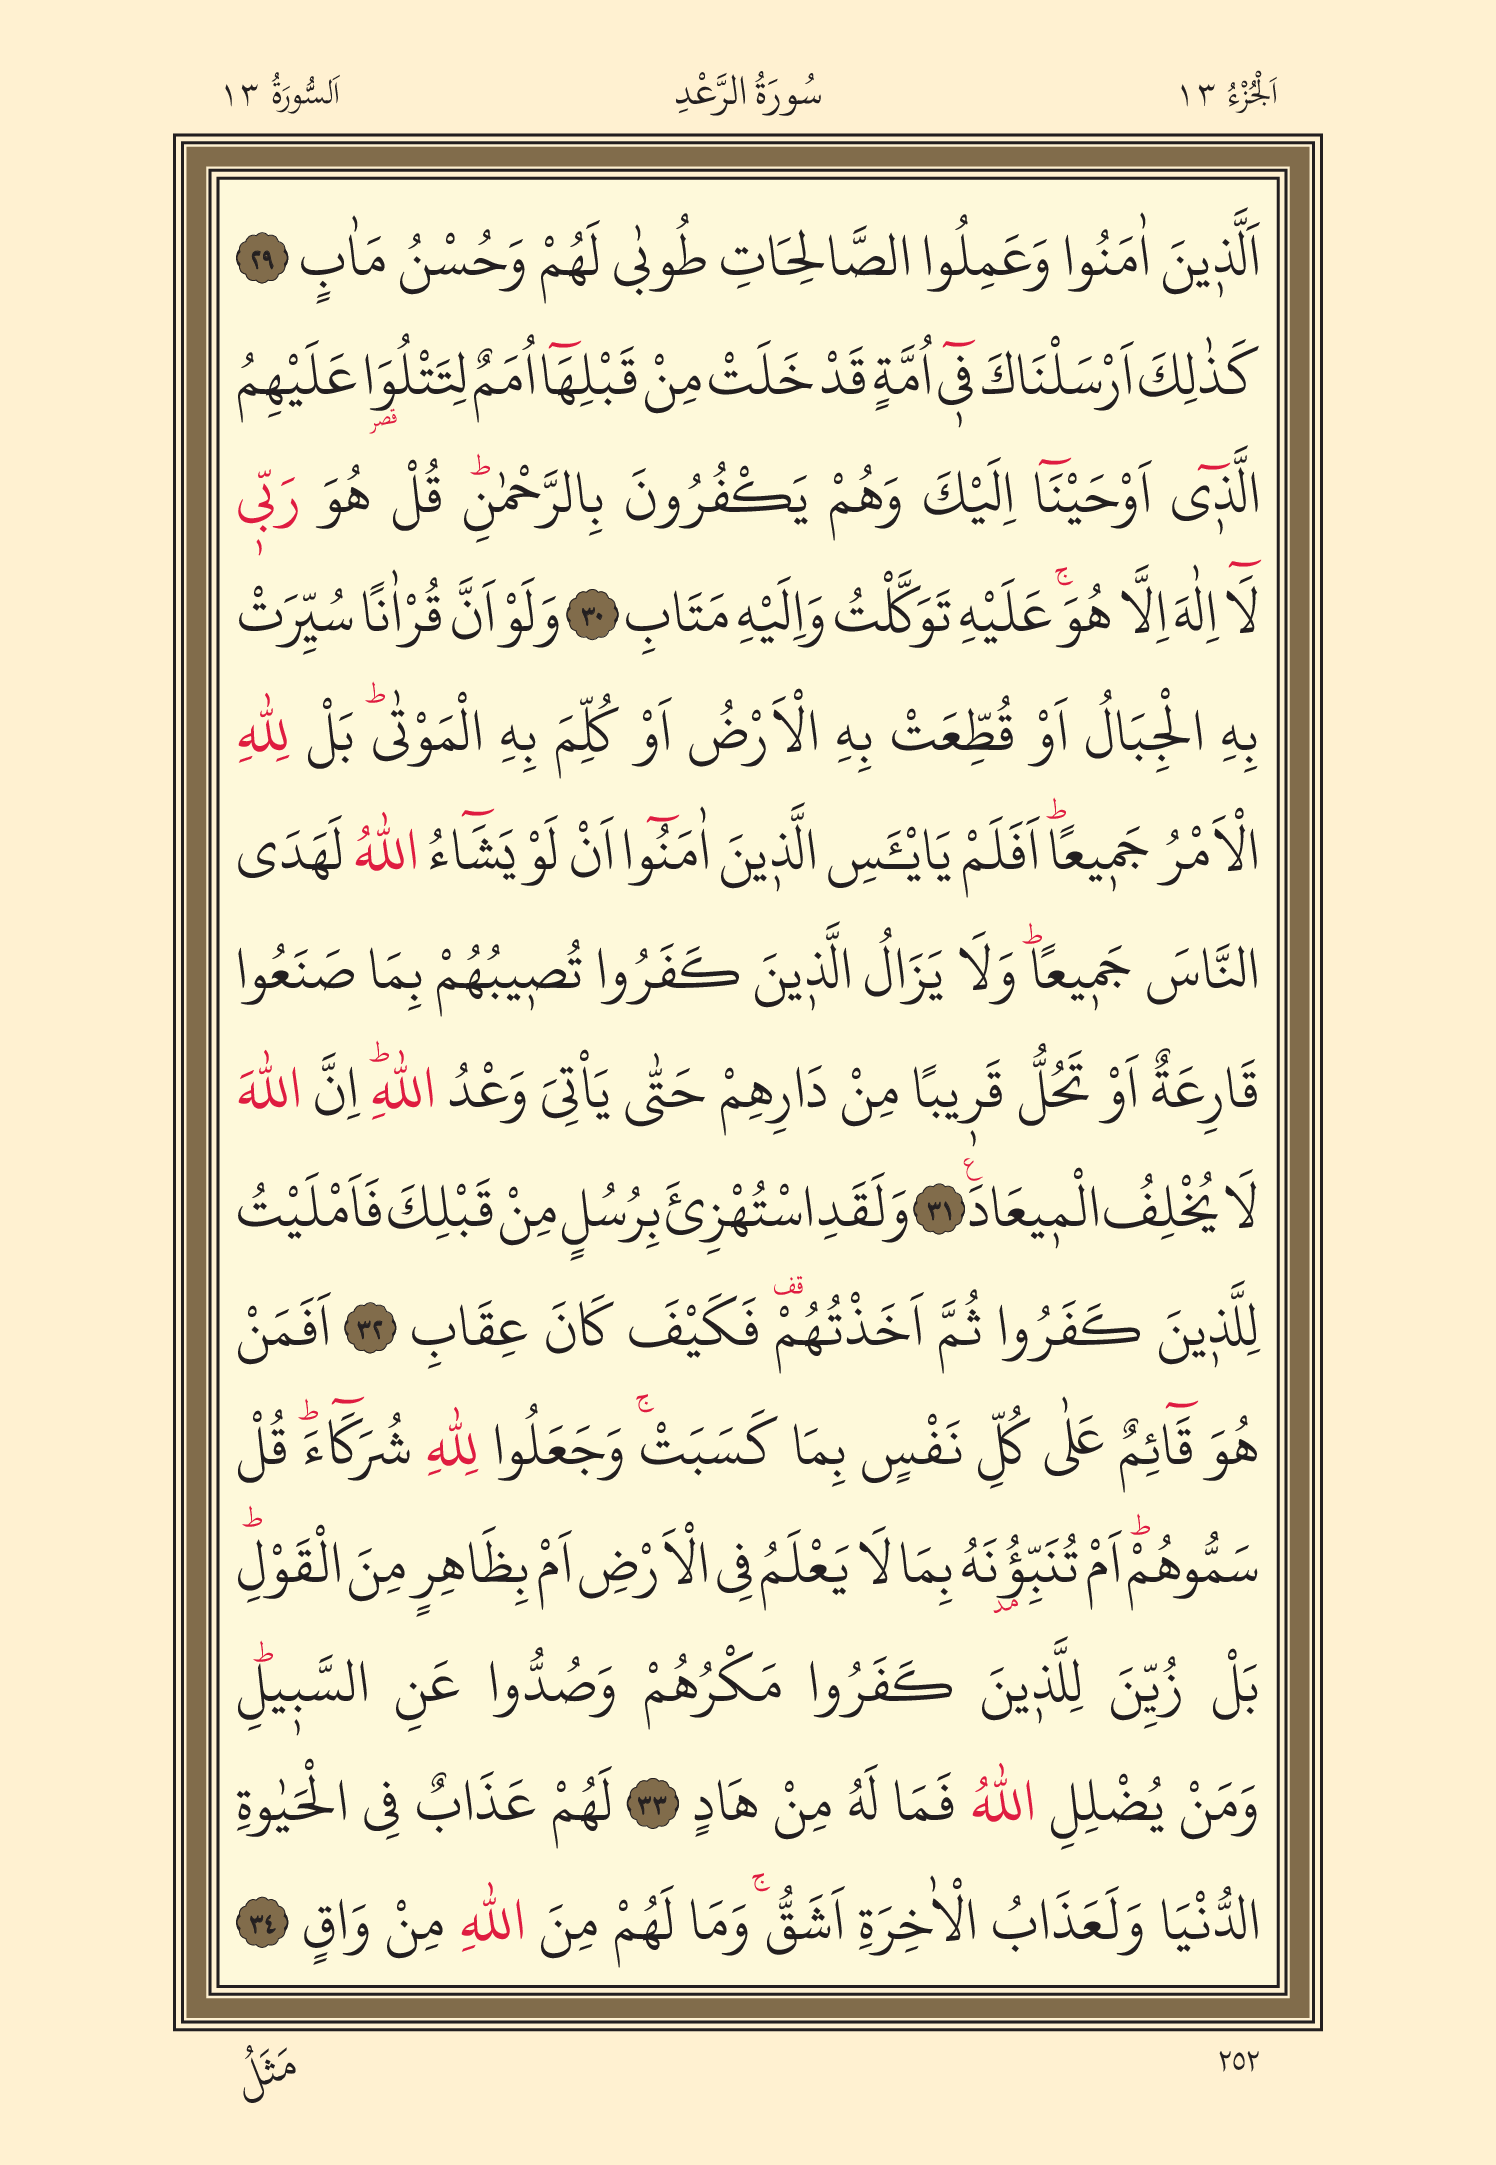 اَلْجُزْءُ ١٣ سُورَةُ الرَّعْدِ اَلسُّورَةُ ١٣
اَلَّذٖينَ اٰمَنُوا وَعَمِلُوا الصَّالِحَاتِ طُوبٰى لَهُمْ وَحُسْنُ مَاٰبٍ ٢٩
كَذٰلِكَ اَرْسَلْنَاكَ فٖٓى اُمَّةٍ قَدْ خَلَتْ مِنْ قَبْلِهَٓا اُمَمٌ لِتَتْلُوَا عَلَيْهِمُ
قصر
الَّذٖٓى اَوْحَيْنَٓا اِلَيْكَ وَهُمْ يَكْفُرُونَ بِالرَّحْمٰنِؕ قُلْ هُوَ رَبّٖى
لَٓا اِلٰهَ اِلَّا هُوَۚ عَلَيْهِ تَوَكَّلْتُ وَاِلَيْهِ مَتَابِ ٣٠ وَلَوْ اَنَّ قُرْاٰنًا سُيِّرَتْ
بِهِ الْجِبَالُ اَوْ قُطِّعَتْ بِهِ الْاَرْضُ اَوْ كُلِّمَ بِهِ الْمَوْتٰىؕ بَلْ لِلّٰهِ
الْاَمْرُ جَمٖيعًاؕ اَفَلَمْ يَايْـَٔسِ الَّذٖينَ اٰمَنُٓوا اَنْ لَوْ يَشَٓاءُ اللّٰهُ لَهَدَى
النَّاسَ جَمٖيعًاؕ وَلَا يَزَالُ الَّذٖينَ كَفَرُوا تُصٖيبُهُمْ بِمَا صَنَعُوا
قَارِعَةٌ اَوْ تَحُلُّ قَرٖيبًا مِنْ دَارِهِمْ حَتّٰى يَاْتِىَ وَعْدُ اللّٰهِؕ اِنَّ اللّٰهَ
لَا يُخْلِفُ الْمٖيعَادَ ع ٣١ وَلَقَدِ اسْتُهْزِئَ بِرُسُلٍ مِنْ قَبْلِكَ فَاَمْلَيْتُ
لِلَّذٖينَ كَفَرُوا ثُمَّ اَخَذْتُهُمْ قف فَكَيْفَ كَانَ عِقَابِ ٣٢ اَفَمَنْ
هُوَ قَٓائِمٌ عَلٰى كُلِّ نَفْسٍ بِمَا كَسَبَتْۚ وَجَعَلُوا لِلّٰهِ شُرَكَٓاءَؕ قُلْ
سَمُّوهُمْؕ اَمْ تُنَبِّؤُنَهُ بِمَا لَا يَعْلَمُ فِى الْاَرْضِ اَمْ بِظَاهِرٍ مِنَ الْقَوْلِؕ
مد
بَلْ زُيِّنَ لِلَّذٖينَ كَفَرُوا مَكْرُهُمْ وَصُدُّوا عَنِ السَّبٖيلِؕ
وَمَنْ يُضْلِلِ اللّٰهُ فَمَا لَهُ مِنْ هَادٍ ٣٣ لَهُمْ عَذَابٌ فِى الْحَيٰوةِ
الدُّنْيَا وَلَعَذَابُ الْاٰخِرَةِ اَشَقُّۚ وَمَا لَهُمْ مِنَ اللّٰهِ مِنْ وَاقٍ ٣٤
٢٥٢ مَثَلُ